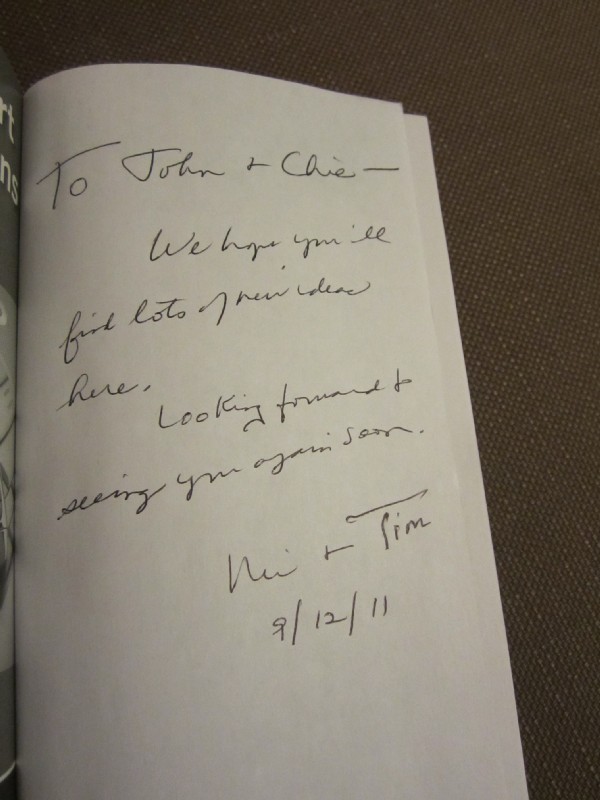 rt
ns
To John + Chie —
We hope you'll
find lots of new ideas
here.
Looking forward to
seeing you again soon.
+ Tim
9/12/11